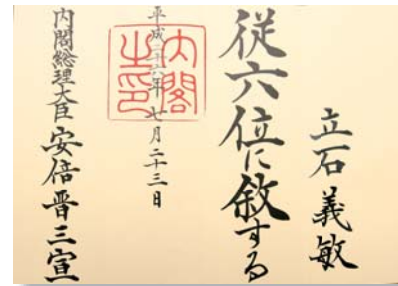 立石義敏
従六位に叙する
平成二十六年七月二十三日
内閣之印
内閣総理大臣安倍晋三宣